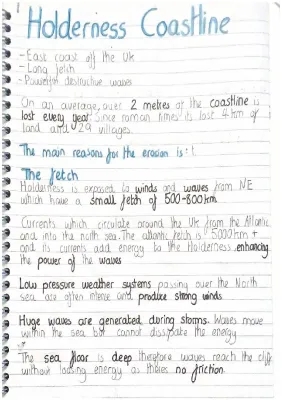 Holderness Coastline
- East coast off the UK
- Long fetch
- Powerful destructive waves
On an average, over 2 metres of the coastline is
lost every year. Since roman times its lost 4km of
land and 29 villages.
The main reasons for the erosion is:
The fetch
Holderness is exposed to winds and waves from NE
which have a small fetch of 500-800km
Currents which circulate around the UK from the Atlantic
and into the north sea. The atlantic fetch is 5000km +
and its currents add energy to the Holderness enhancing
the power of the waves
Low pressure weather systems passing over the North
sea are often intense and produce strong winds
Huge waves are generated during storms. Waves move
within the sea but cannot dissipate the energy
The sea floor is deep therefore waves reach the cliff
without losing energy as theres no friction.